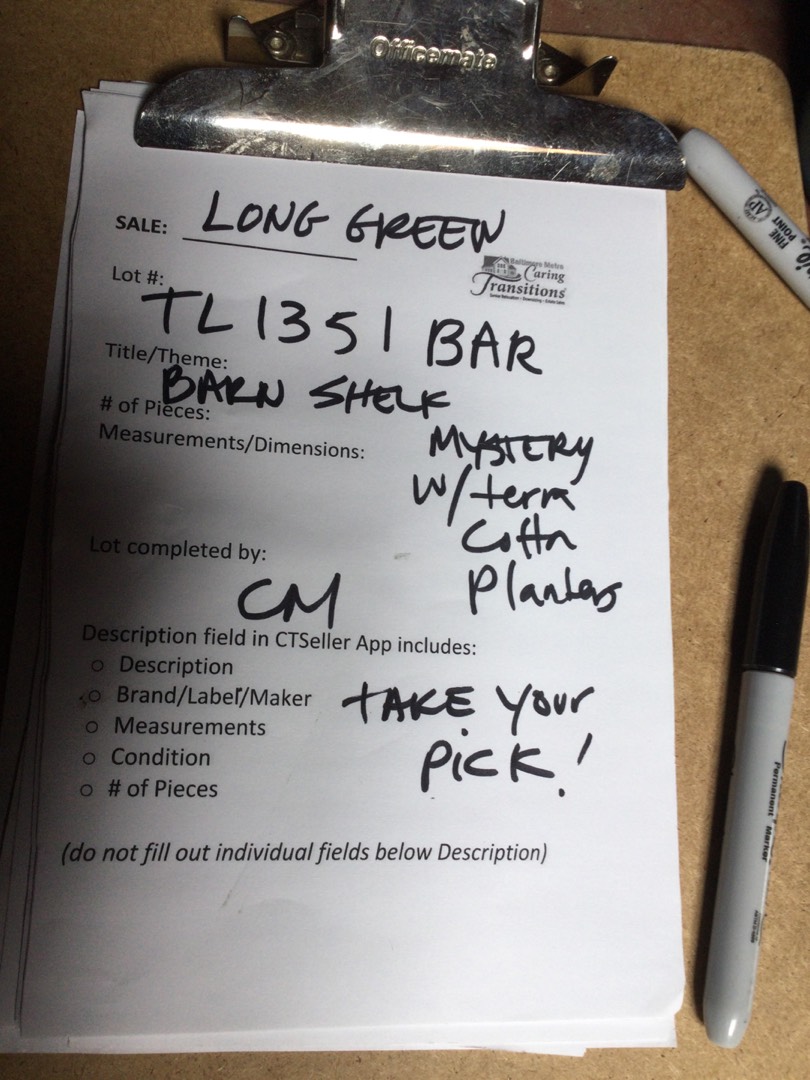 Officemate
SALE: LONG GREEN
Baltimore Metro
Caring
Transitions
Lot #:
TL 1351 BAR
Title/Theme:
BARN SHELF
# of Pieces:
Measurements/Dimensions:
MYSTERY
W/terra
Cotta
Planters
Lot completed by:
CM
Description field in CTSeller App includes:
Description
Brand/Label/Maker
Measurements
Condition
# of Pieces
TAKE YOUR
PICK!
(do not fill out individual fields below Description)
AP
FINE
POINT
Permanent Marker